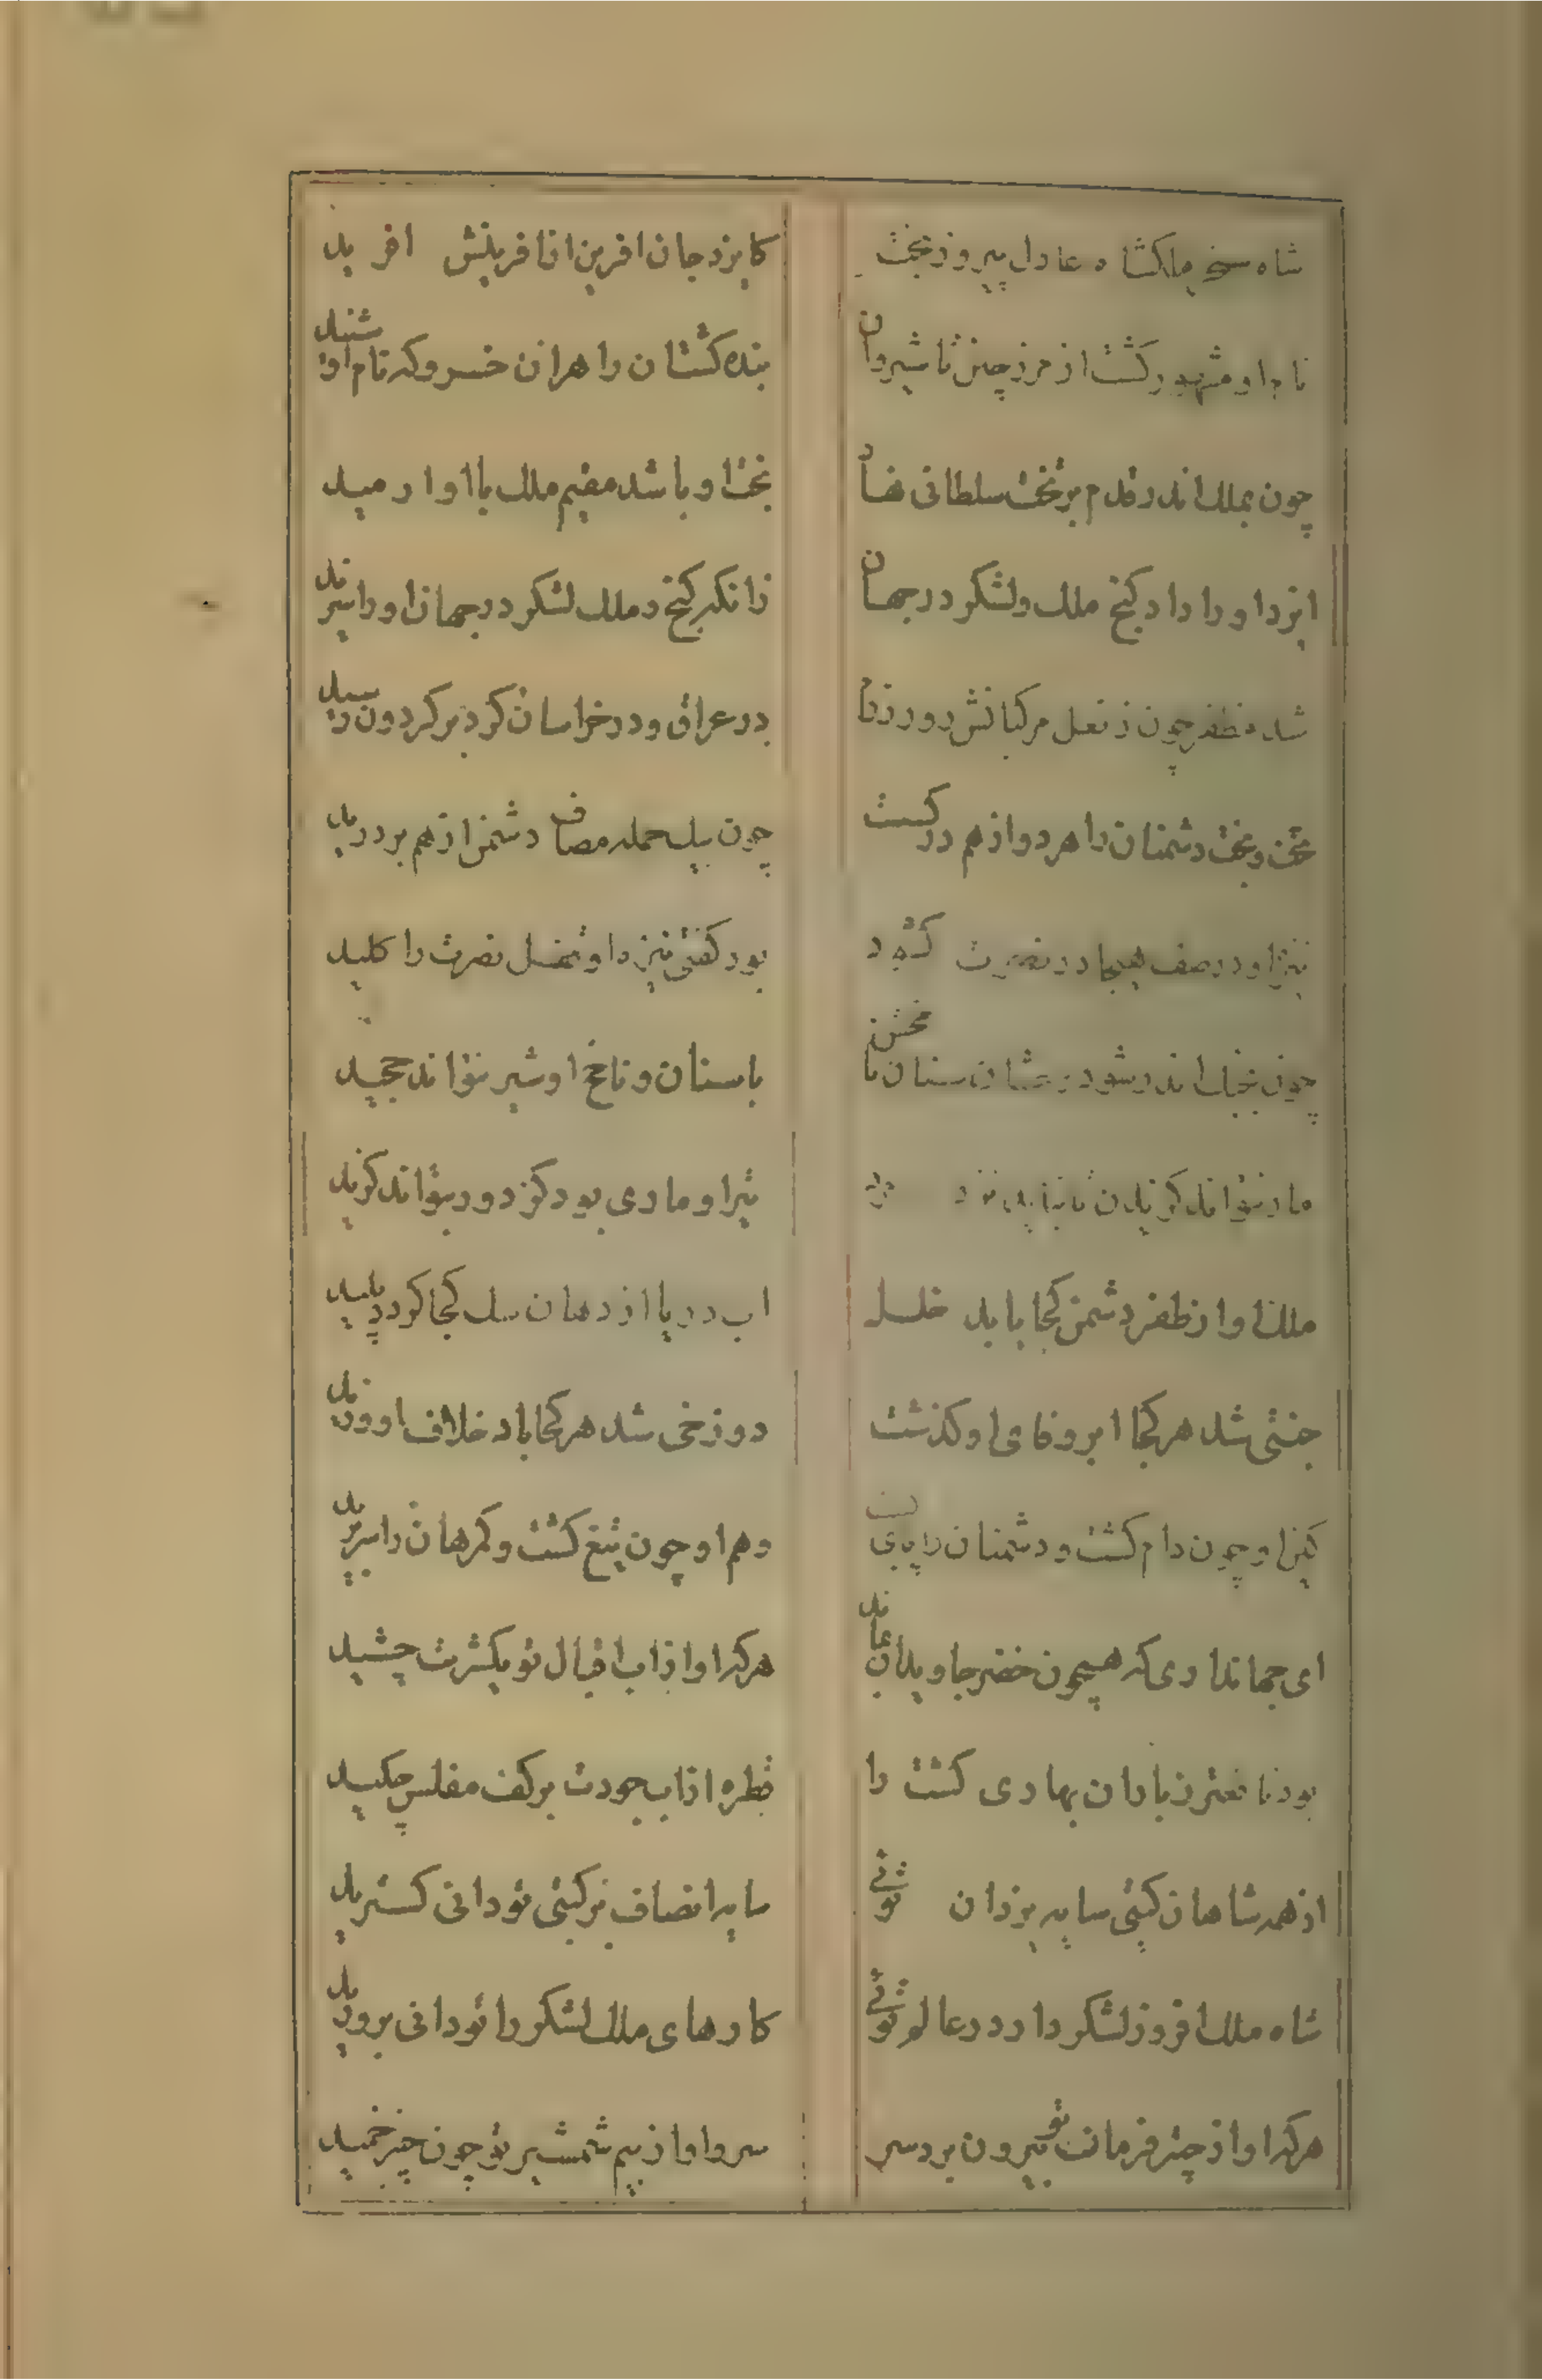 شاه سنجر ملکشاه عادل پیروزبخت
کایزد جان افرین انافرینش افرید
نام او مشهور گشت از مرز چین تا شیروان
بنده گشتان را هران خسرو که نام او شنید
چون بملک اندر قدم بر تخت سلطانی نهاد
بخت او باشد مقیم ملک با او ارمید
ایزد او را داد گنج ملک ولشکر در جهان
زانکه گنج و ملک لشکر در جهان او را سزید
شد مظفر چون ز نعل مرکبانش دور زد
در عراق و در خراسان گرد بر گردون رسید
تخت و بخت دشمنان را هر دو از هم در گست
چون بیک حمله مصاف دشمن از هم بر درید
تیغ او در صف هیجا در نصرت گشود
بود گفتی نیزه او قفل نصرت را کلید
چون بجنگ اندر شود رخشان سنان با خشت
با سنان و ناخج او شیر نتواند چخید
مار نتواند گزیدن تا نیاید نزد
تیر او ماری بود کز دور بتواند گزید
ملک او از ظفر دشمن کجا یابد خلل
اب دریا از دهان سک کجا گردد پلید
جنتی شد هر کجا ابر وفای او گذشت
دوزخی شد هر کجا باد خلاف او وزید
کین او چون دام گشت و دشمنان را پای بست
وهم او چون تیغ گشت و گمرهان را سر برید
ای جهانداری که همچون خضر جاویدان بماند
هر که او از اب اقبال تو یکشربت چشید
بود نافعتر ز باران بهاری کشت را
قطره از اب جودت بر کف مفلس چکید
از همه شاهان گیتی سایه یزدان توئی
سایه انصاف بر گیتی تو دانی گسترید
شاه ملک افروز لشکر دار در عالم توئی
کارهای ملک لشکر را تو دانی پرورید
هر که او از چنبر فرمانت تو بیرون برد سر
سرو او از بیم شمشیر تو چون چنبر خمید